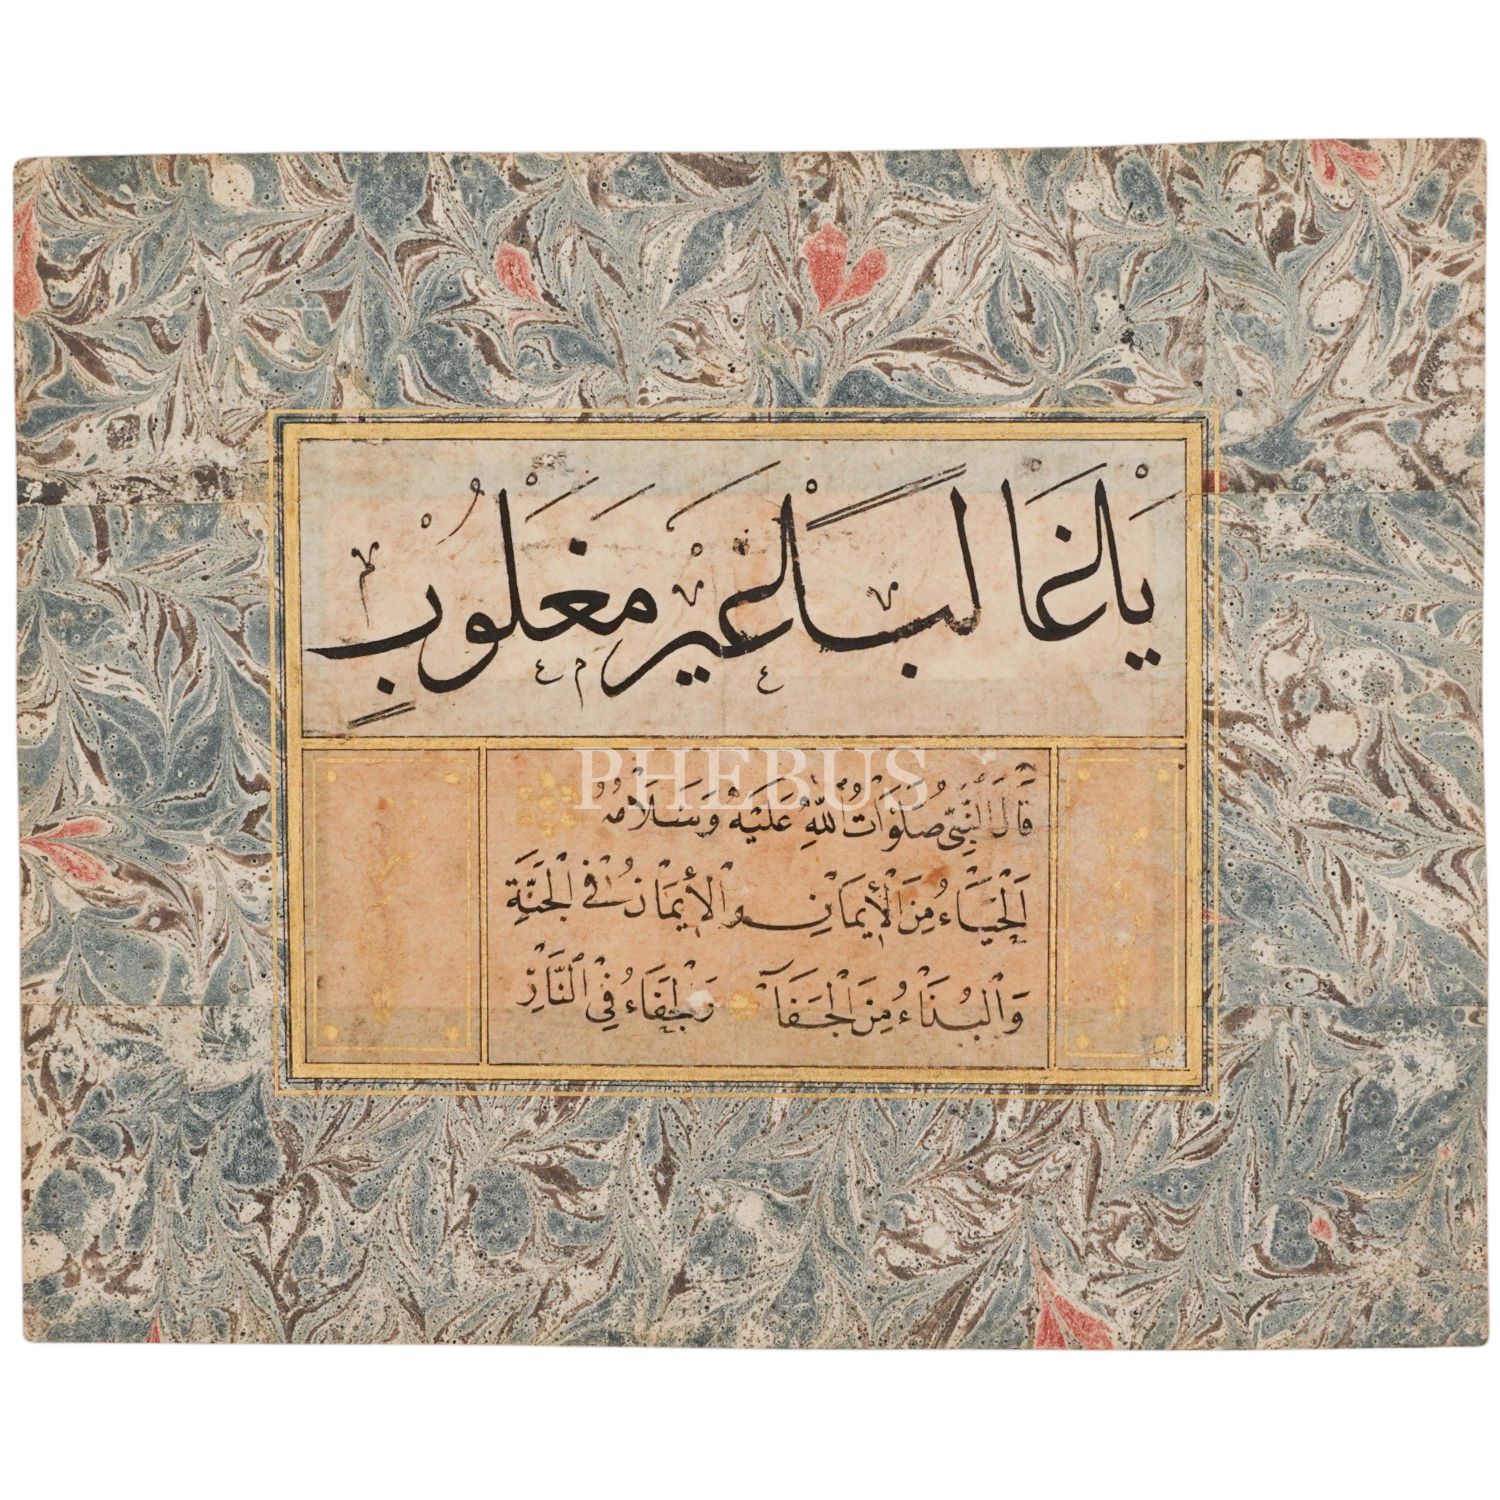 يَا غَالِبًا غَيْرَ مَغْلُوبٍ
PHEBUS
قَالَ النَّبِيُّ صَلَوَاتُ اللَّهِ عَلَيْهِ وَسَلَامُهُ
اَلْحَيَاءُ مِنَ الْإِيمَانِ وَالْإِيمَانُ فِي الْجَنَّةِ
وَالْبَذَاءُ مِنَ الْجَفَاءِ وَالْجَفَاءُ فِي النَّارِ